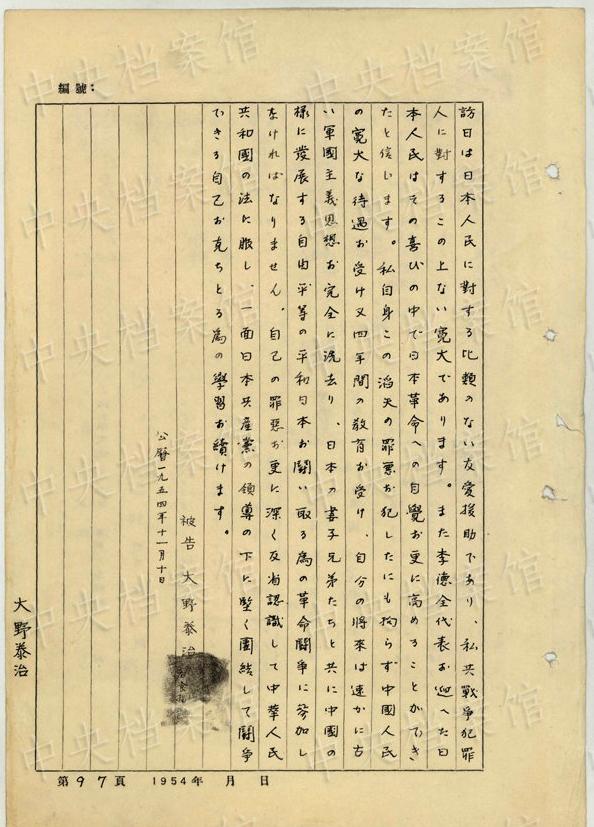 編號：
訪日は日本人民に對する比類のない友愛援助であり、私共戰爭犯罪
人に對するこの上ない寬大であります。また李德全代表お迎へた日
本人民はその喜びの中で日本革命への自覺お更に高めることができ
たと信じます。私自身この滔天の罪惡お犯したにも拘らず中國人民
の寬大な待遇お受け又四年間の敎育お受け、自分の將來は速かに古
い軍國主義思想お完全に洗去り、日本の妻子兄弟たちと共に中國の
樣に發展する自由平等の平和日本お鬪い取る為の革命鬪爭に參加し
なければなりません。自己の罪惡お更に深く反省認識して中華人民
共和國の法に服し、一面日本共產黨の領導の下に堅く團結して鬪爭
できる自己お克ちとる為の學習お續けます。
被告 大野泰治
公曆一九五四年十一月十日
大野泰治
第97頁 1954年 月 日
中央档案馆